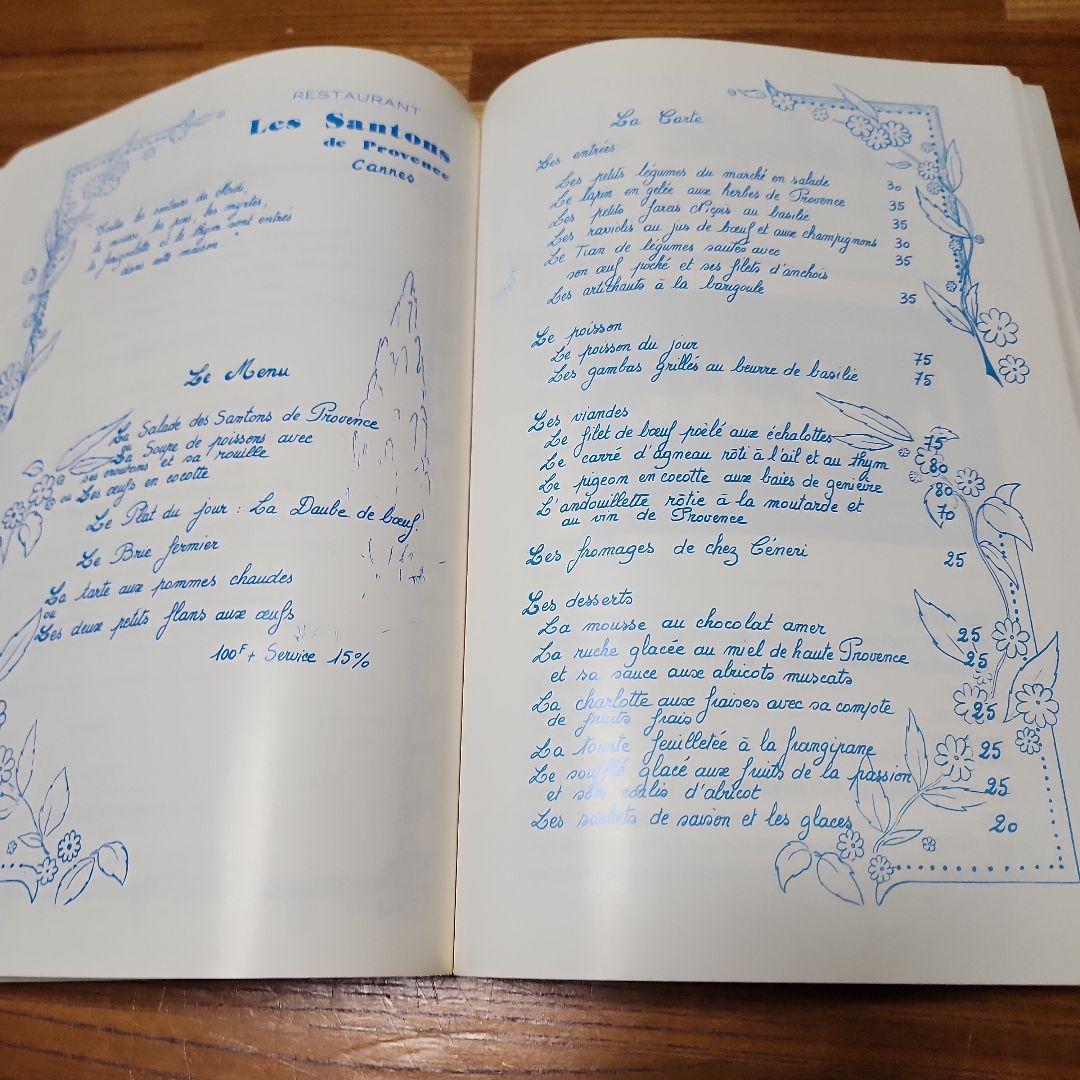 RESTAURANT
Les Santons
de Provence
Cannes
Toutes les senteurs du Midi,
le romarin, les pins, les myrtes,
la farigoulette et le thym sont entrés
dans cette maison."
Le Menu
La Salade des Santons de Provence
ou
La Soupe de poissons avec
ses croutons et sa rouille
ou Les œufs en cocotte
Le Plat du jour : La Daube de bœuf
Le Brie fermier
La tarte aux pommes chaudes
ou
Les deux petits flans aux œufs
100F + Service 15%
La Carte
Les entrées
Les petits légumes du marché en salade 30
Le lapin en gelée aux herbes de Provence 35
Les petits farcis Niçois au basilic 35
Les raviolis au jus de bœuf et aux champignons 30
Le Tian de légumes sautés avec 35
son œuf poché et ses filets d'anchois
Les artichauts à la barigoule 35
Le poisson
Le poisson du jour 75
Les gambas grillés au beurre de basilic 75
Les viandes
Le filet de bœuf poêlé aux échalottes 75
Le carré d'agneau rôti à l'ail et au thym 80
Le pigeon en cocotte aux baies de genièvre 80
L'andouillette rôtie à la moutarde et 70
au vin de Provence
Les fromages de chez Céneri 25
Les desserts
La mousse au chocolat amer 25
La ruche glacée au miel de haute Provence 25
et sa sauce aux abricots muscats
La charlotte aux fraises avec sa compote 25
de fruits frais
La tourte feuilletée à la frangipane 25
Le soufflé glacé aux fruits de la passion 25
et son coulis d'abricot
Les sorbets de saison et les glaces 20